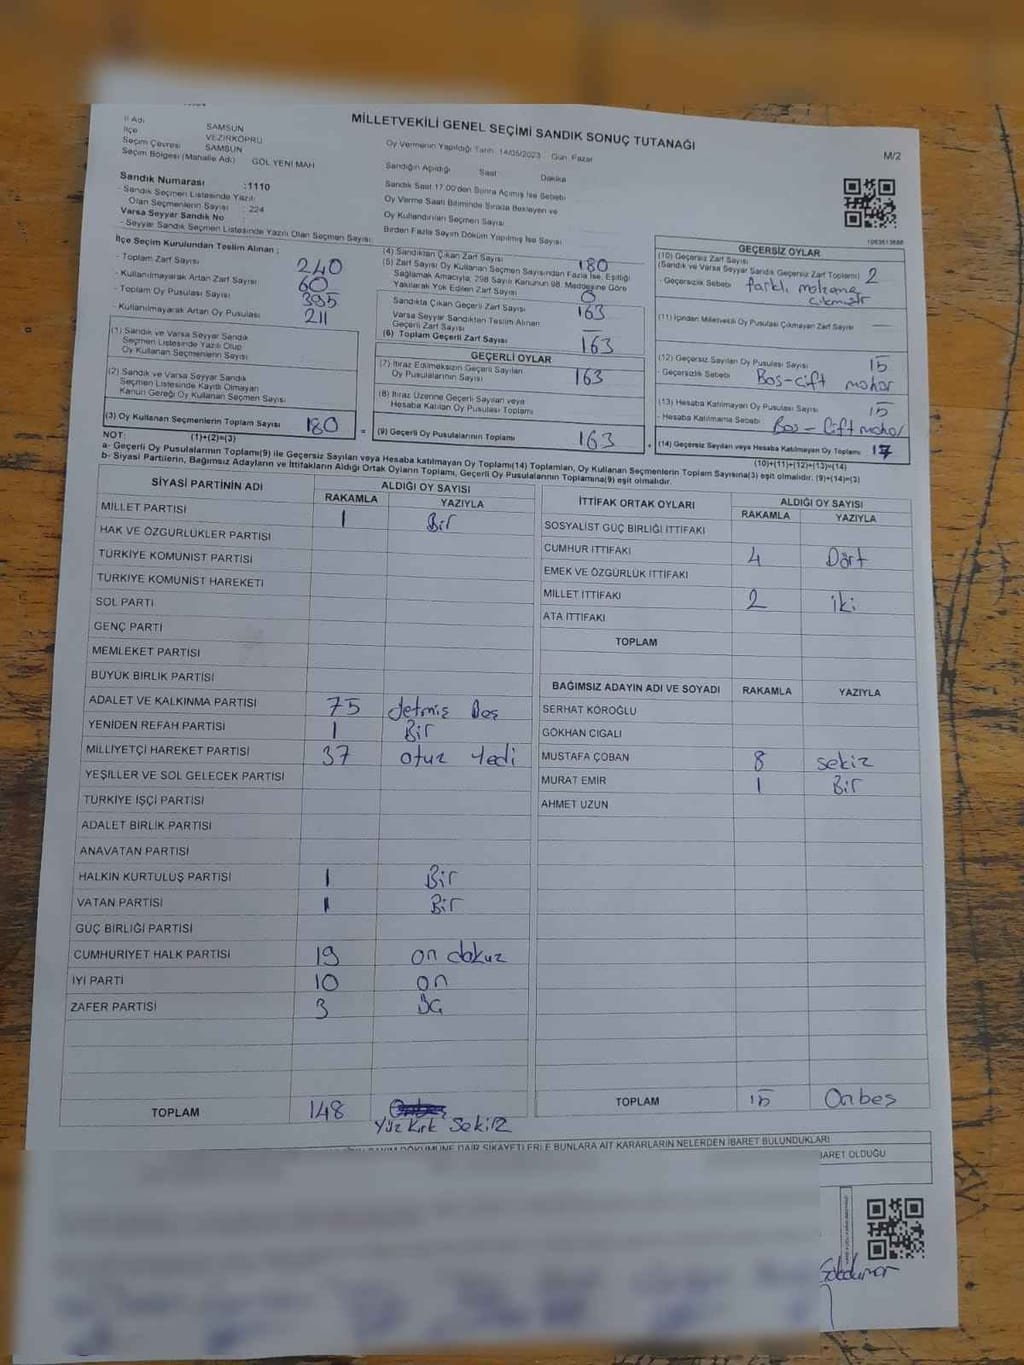 MİLLETVEKİLİ GENEL SEÇİMİ SANDIK SONUÇ TUTANAĞI
M/2
İl Adı SAMSUN
İlçe VEZİRKÖPRÜ
Seçim Çevresi SAMSUN
Seçim Bölgesi (Mahalle Adı) GÖL YENİ MAH
Sandık Numarası :1110
- Sandık Seçmen Listesinde Yazılı
Olan Seçmenlerin Sayısı : 224
Varsa Seyyar Sandık No :
- Seyyar Sandık Seçmen Listesinde Yazılı Olan Seçmen Sayısı:
Oy Vermenin Yapıldığı Tarih: 14/05/2023 Gün: Pazar
Sandığın Açıldığı Saat: Dakika
Sandık Saat 17.00'den Sonra Açılmış İse Sebebi
Oy Verme Saati Bitiminde Sırada Bekleyen ve
Oy Kullandırılan Seçmen Sayısı
Birden Fazla Sayım Döküm Yapılmış İse Sayısı
İlçe Seçim Kurulundan Teslim Alınan :
- Toplam Zarf Sayısı 240
- Kullanılmayarak Artan Zarf Sayısı 60
- Toplam Oy Pusulası Sayısı 395
- Kullanılmayarak Artan Oy Pusulası 211
(1) Sandık ve Varsa Seyyar Sandık
Seçmen Listesinde Yazılı Olup
Oy Kullanan Seçmenlerin Sayısı
(2) Sandık ve Varsa Seyyar Sandık
Seçmen Listesinde Kayıtlı Olmayan
Kanun Gereği Oy Kullanan Seçmen Sayısı
(3) Oy Kullanan Seçmenlerin Toplam Sayısı 180
(4) Sandıktan Çıkan Zarf Sayısı 180
(5) Zarf Sayısı Oy Kullanan Seçmen Sayısından Fazla İse, Eşitliği
Sağlamak Amacıyla, 298 Sayılı Kanunun 98. Maddesine Göre
Yakılarak Yok Edilen Zarf Sayısı 0
Sandıkta Çıkan Geçerli Zarf Sayısı 163
Varsa Seyyar Sandıktan Teslim Alınan
Geçerli Zarf Sayısı —
(6) Toplam Geçerli Zarf Sayısı 163
GEÇERLİ OYLAR
(7) İtiraz Edilmeksizin Geçerli Sayılan
Oy Pusulalarının Sayısı 163
(8) İtiraz Üzerine Geçerli Sayılan veya
Hesaba Katılan Oy Pusulası Toplamı
= (9) Geçerli Oy Pusulalarının Toplamı 163
GEÇERSİZ OYLAR
(10) Geçersiz Zarf Sayısı
(Sandık ve Varsa Seyyar Sandık Geçersiz Zarf Toplamı) 2
- Geçersizlik Sebebi farklı malzeme
çıkmıştır
(11) İçinden Milletvekili Oy Pusulası Çıkmayan Zarf Sayısı —
(12) Geçersiz Sayılan Oy Pusulası Sayısı 15
- Geçersizlik Sebebi Boş-çift mühür
(13) Hesaba Katılmayan Oy Pusulası Sayısı 15
- Hesaba Katılmama Sebebi Boş-Çift mühür
(14) Geçersiz Sayılan veya Hesaba Katılmayan Oy Toplamı 17
(10)+(11)+(12)+(13)=(14)
NOT: (1)+(2)=(3)
a- Geçerli Oy Pusulalarının Toplamı(9) ile Geçersiz Sayılan veya Hesaba katılmayan Oy Toplamı(14) Toplamları, Oy Kullanan Seçmenlerin Toplam Sayısına(3) eşit olmalıdır. (9)+(14)=(3)
b- Siyasi Partilerin, Bağımsız Adayların ve İttifakların Aldığı Ortak Oyların Toplamı, Geçerli Oy Pusulalarının Toplamına(9) eşit olmalıdır.
SİYASİ PARTİNİN ADI ALDIĞI OY SAYISI
RAKAMLA YAZIYLA
MİLLET PARTİSİ 1 Bir
HAK VE ÖZGÜRLÜKLER PARTİSİ
TÜRKİYE KOMÜNİST PARTİSİ
TÜRKİYE KOMÜNİST HAREKETİ
SOL PARTİ
GENÇ PARTİ
MEMLEKET PARTİSİ
BÜYÜK BİRLİK PARTİSİ
ADALET VE KALKINMA PARTİSİ 75 Yetmiş Beş
YENİDEN REFAH PARTİSİ 1 Bir
MİLLİYETÇİ HAREKET PARTİSİ 37 otuz Yedi
YEŞİLLER VE SOL GELECEK PARTİSİ
TÜRKİYE İŞÇİ PARTİSİ
ADALET BİRLİK PARTİSİ
ANAVATAN PARTİSİ
HALKIN KURTULUŞ PARTİSİ 1 Bir
VATAN PARTİSİ 1 Bir
GÜÇ BİRLİĞİ PARTİSİ
CUMHURİYET HALK PARTİSİ 19 on dokuz
İYİ PARTİ 10 on
ZAFER PARTİSİ 3 üç
TOPLAM 148 Yüz Kırk Sekiz
İTTİFAK ORTAK OYLARI ALDIĞI OY SAYISI
RAKAMLA YAZIYLA
SOSYALİST GÜÇ BİRLİĞİ İTTİFAKI
CUMHUR İTTİFAKI 4 Dört
EMEK VE ÖZGÜRLÜK İTTİFAKI
MİLLET İTTİFAKI 2 iki
ATA İTTİFAKI
TOPLAM
BAĞIMSIZ ADAYIN ADI VE SOYADI RAKAMLA YAZIYLA
SERHAT KÖROĞLU
GÖKHAN CIGALI
MUSTAFA ÇOBAN 8 sekiz
MURAT EMİR 1 Bir
AHMET UZUN
TOPLAM 15 Onbeş
DÖKÜMÜNE DAİR ŞİKAYETLERLE BUNLARA AİT KARARLARIN NELERDEN İBARET BULUNDUKLARI
İBARET OLDUĞU